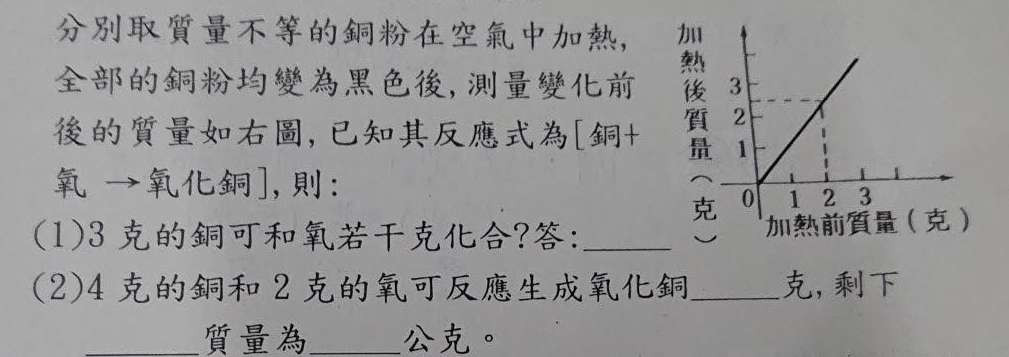 分別取質量不等的銅粉在空氣中加熱,
全部的銅粉均變為黑色後,測量變化前
後的質量如右圖,已知其反應式為[銅+
氧 →氧化銅],則:
(1)3 克的銅可和氧若干克化合?答:______
(2)4 克的銅和 2 克的氧可反應生成氧化銅______克,剩下
________質量為______公克。
加熱後質量(克)
3
2
1
0 1 2 3
加熱前質量(克)